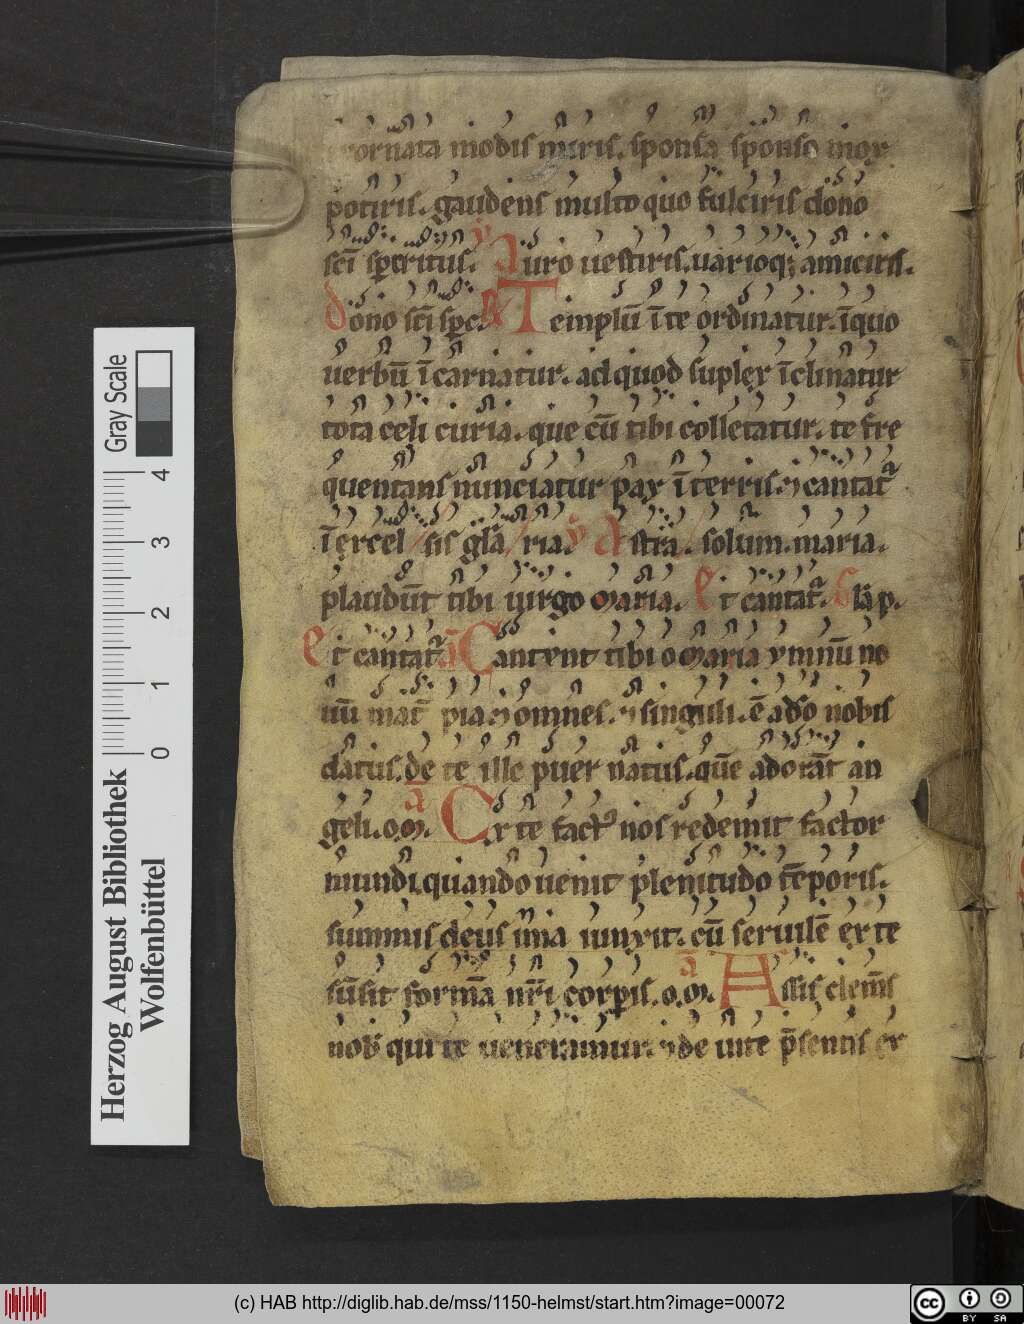 ornata modis miris. sponsa sponso mox
potiris. gaudens multo quo fulciris dono
sc̄i spiritus. v̄ Auro uestiris. uarioq; amiciris.
dono sc̄i spc. R Templū ī te ordinatur. ī quo
uerbū ī carnatur. ad quod suplex ī clinatur
tota celi curia. que cū tibi colletatur. te fre
quentans nunciatur pax ī terris. ⁊ cantat᷑
ī excel sis gl̄a ria. v̄ Astra. solum. maria.
plaudūt tibi uirgo maria. Et cantat᷑. Gl̄a p.
Et cantat᷑ ā Cantent tibi o maria ymnū no
uū mat̄ pia. ⁊ omnes. ⁊ singuli. ē ado nobis
datus. de te ille puer natus. quē adorāt an
geli. o. m. ā Ex te fact᷒ nos redemit factor
mundi. quando uenit plenitudo tēporis.
summus deus ima iunxit. cū seruilē ex te
sūsit formā nr̄i corpis. o. m. ā Assis clem̄s
nob̄ qui te ueneramur. ⁊ de uite p̄sentis ex
Gray Scale
0 1 2 3 4
Herzog August Bibliothek
Wolfenbüttel
(c) HAB http://diglib.hab.de/mss/1150-helmst/start.htm?image=00072
cc BY SA